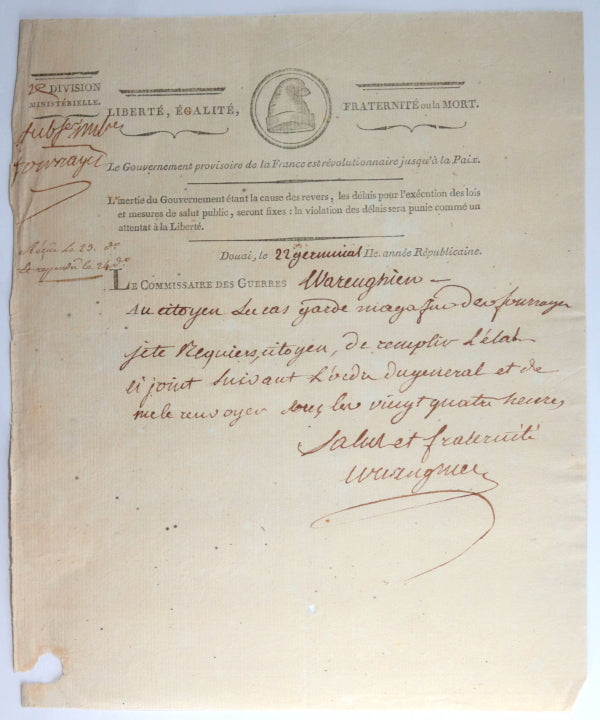 2e DIVISION
MINISTÉRIELLE.
LIBERTÉ, ÉGALITÉ,
FRATERNITÉ ou la MORT.
fourrages
Le Gouvernement provisoire de la France est révolutionnaire jusqu'à la Paix.
L'inertie du Gouvernement étant la cause des revers, les délais pour l'exécution des lois
et mesures de salut public, seront fixes : la violation des délais sera punie comme un
attentat à la Liberté.
Reçue le 23. do
Répondu le 24 do
Douai, le 22 germinal IIe. année Républicaine.
LE COMMISSAIRE DES GUERRES Warenghien
Au citoyen Lucas garde magasin des fourrages
je te Requiers, citoyen, de remplir L'état
ci joint suivant L'ordre du general et de
me le renvoyer sous les vingt quatre heures
Salut et fraternité
Warenghien